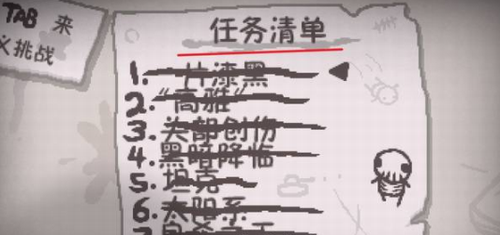 TAB 来
义挑战
任务清单
1. 一片漆黑
2. "高雅"
3. 头部创伤
4. 黑暗降临
5. 坦克
6. 太阳系
7.